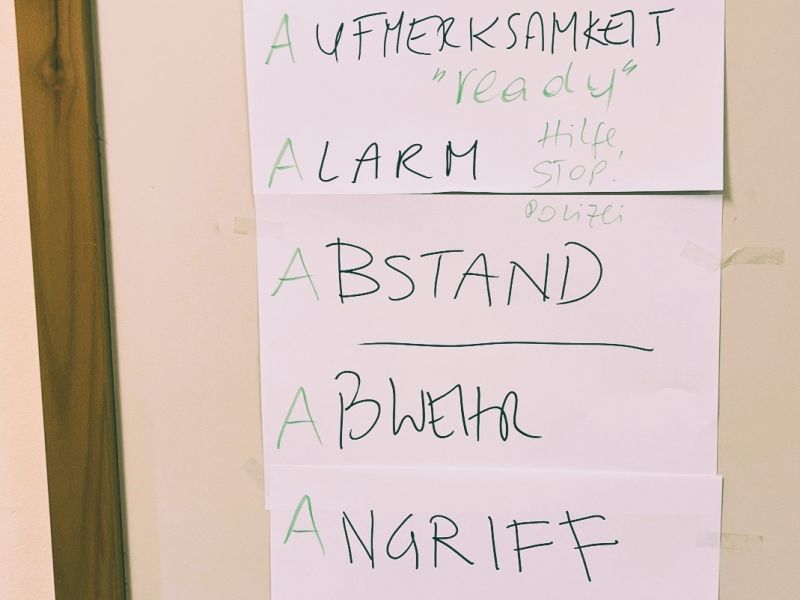 AUFMERKSAMKEIT
"ready"
ALARM
Hilfe,
STOP!
Polizei
ABSTAND
ABWEHR
ANGRIFF